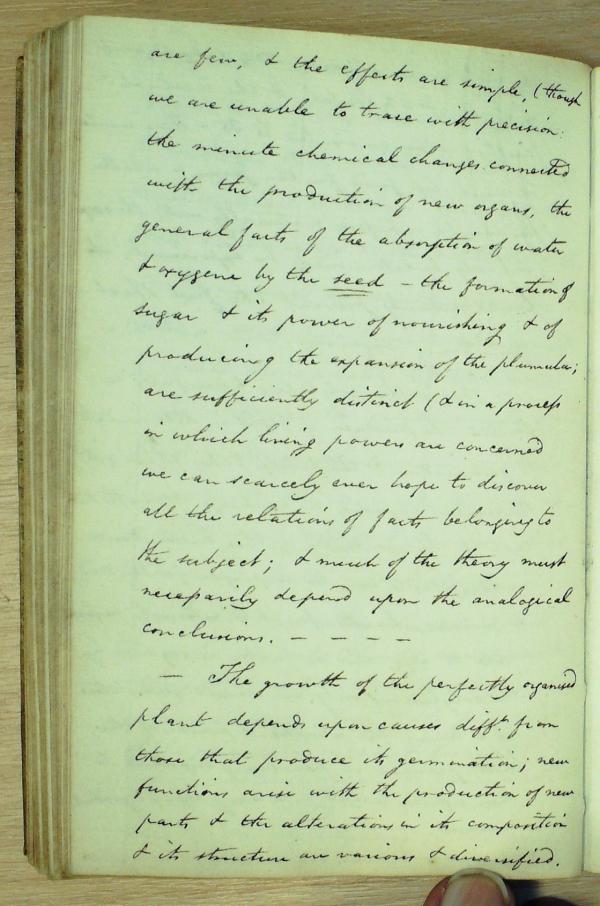 are few, & the effects are simple, (though
we are unable to trace with precision
the minute chemical changes connected
with the production of new organs, the
general facts of the absorption of water
& oxygene by the seed – the formation of
sugar & its power of nourishing & of
producing the expansion of the plumula;
are sufficiently distinct (& in a process
in which living powers are concerned
we can scarcely ever hope to discover
all the relations of facts belonging to
the subject; & much of the theory must
necessarily depend upon the analogical
conclusions. – – – –
– The growth of the perfectly organised
plant depends upon causes difft. from
those that produce its germination; new
functions arise with the production of new
parts & the alterations in its composition
& its structure are various & diversified.